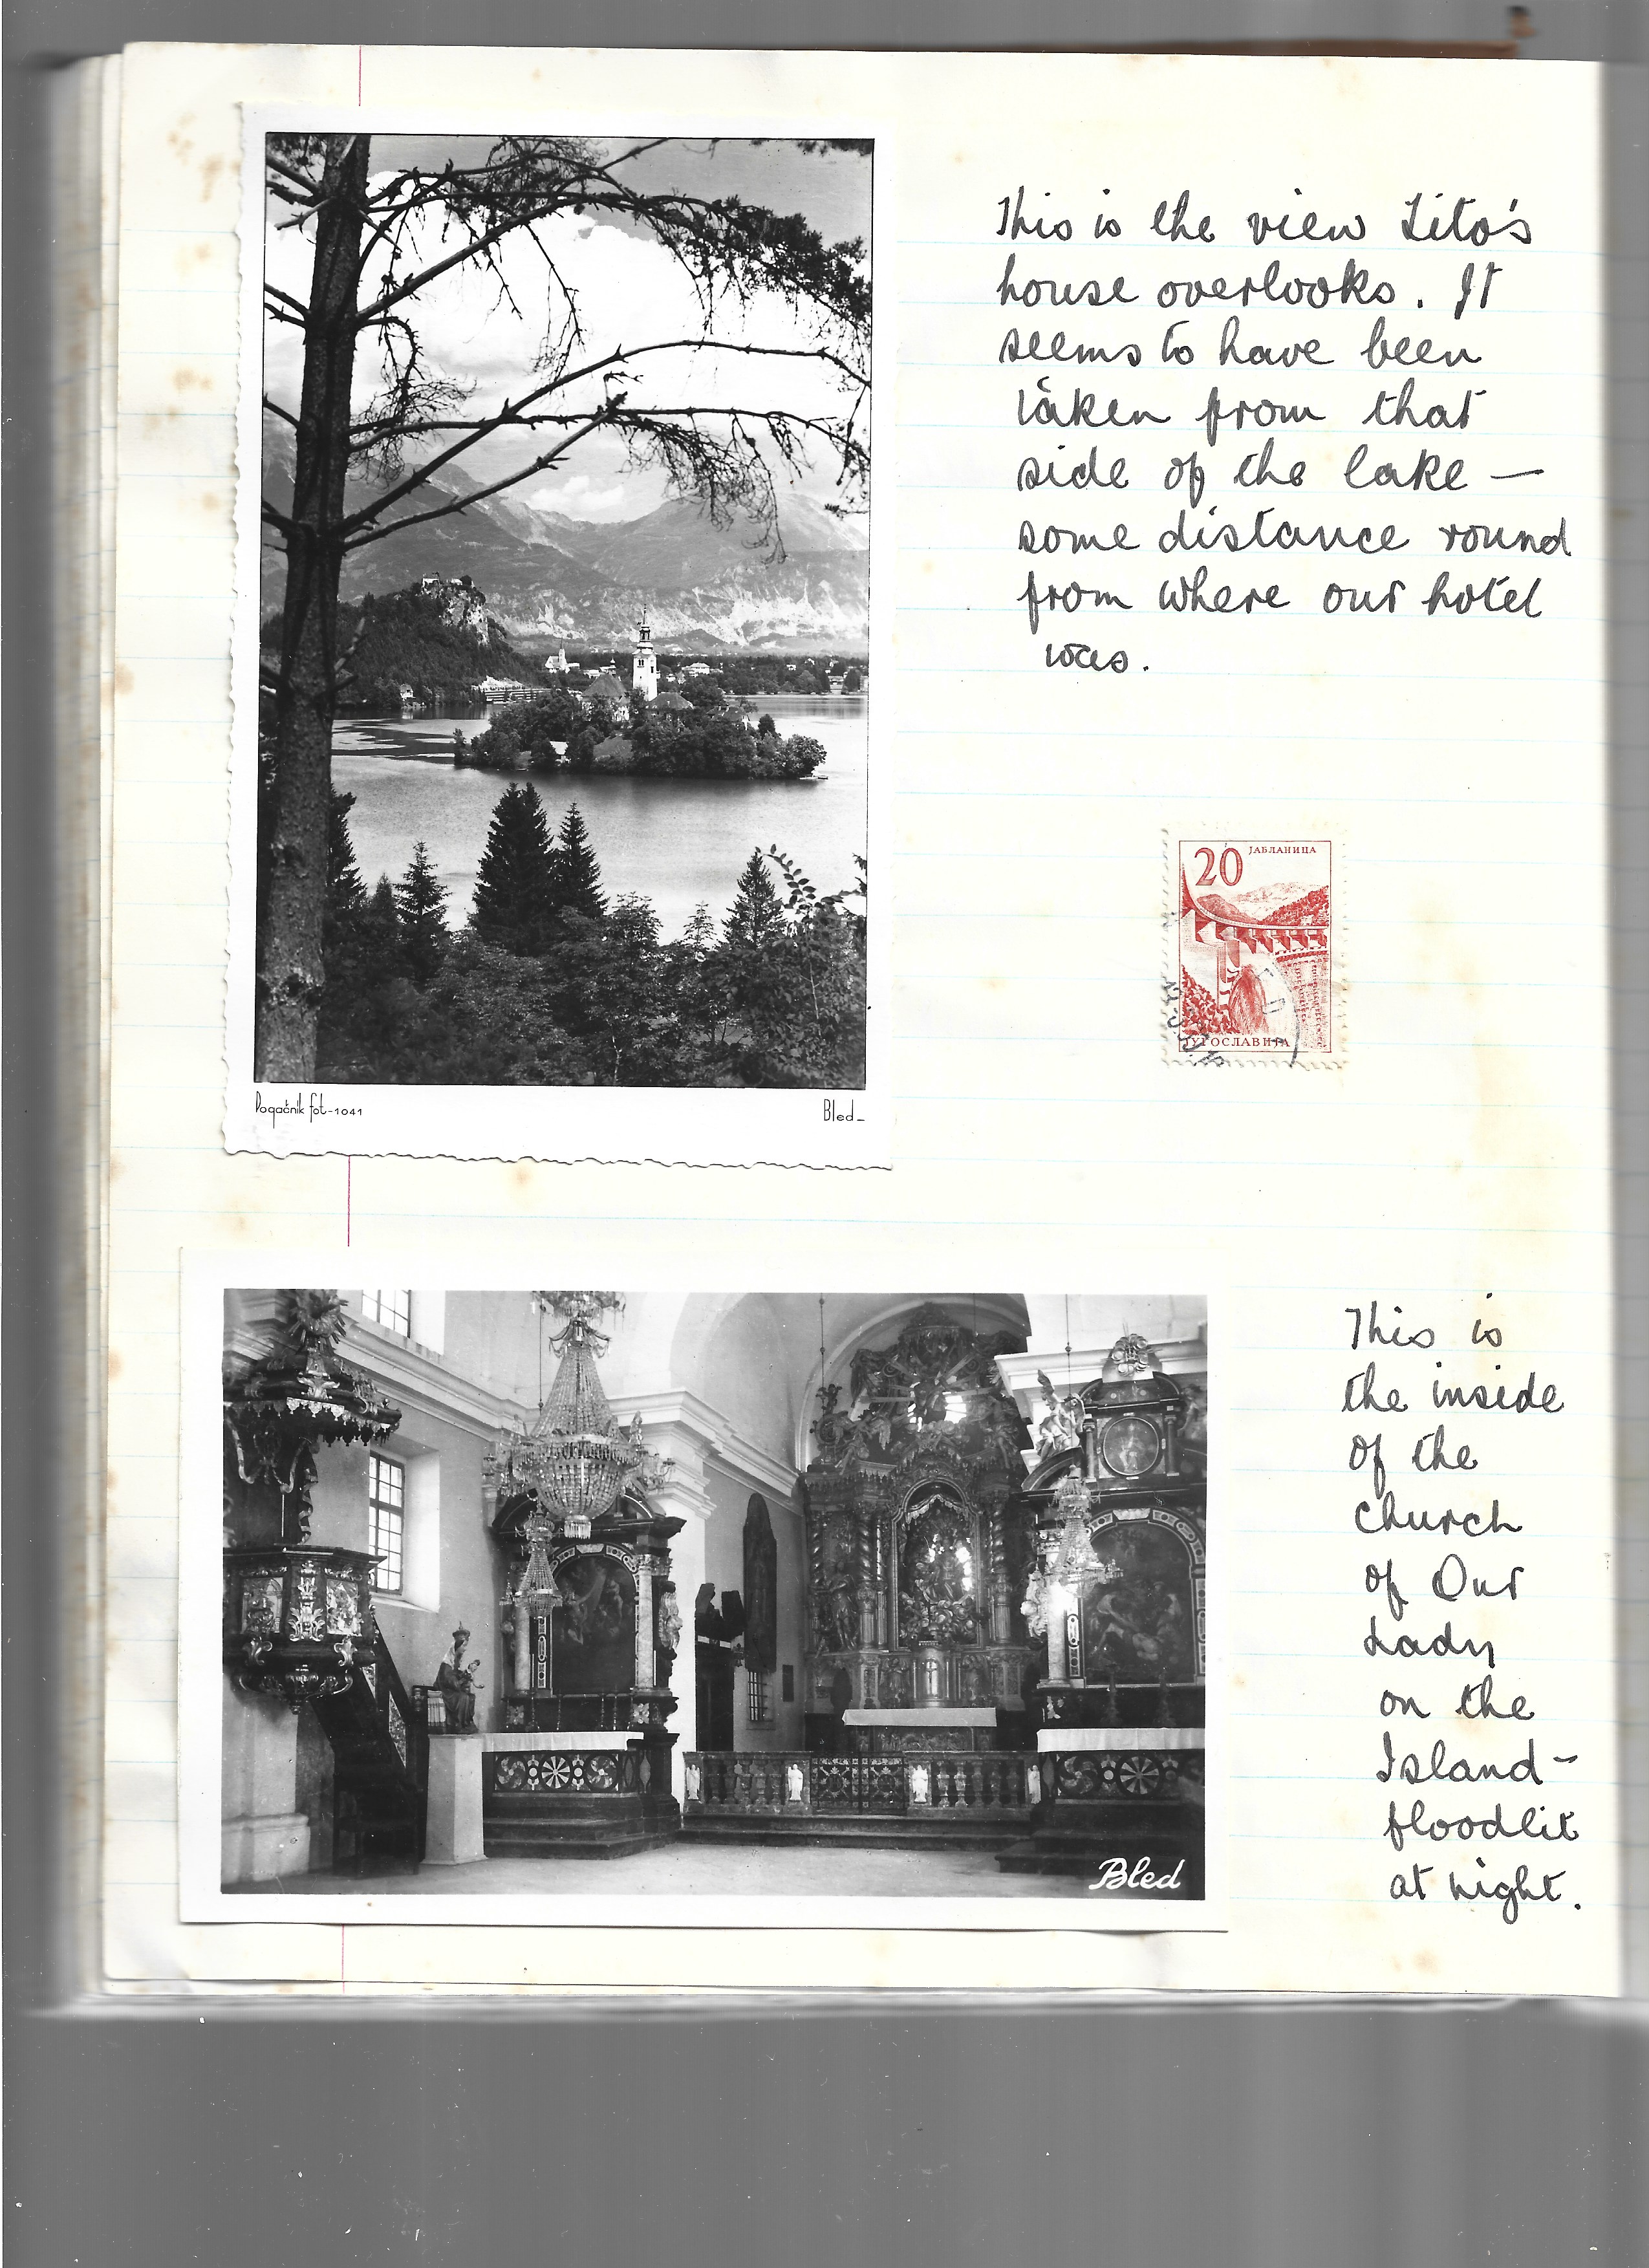 This is the view Tito's
house overlooks. It
seems to have been
taken from that
side of the lake —
some distance round
from where our hotel
was.
20 ЈАБЛАНИЦА
ЈУГОСЛАВИЈА
Pogačnik fot-1041
Bled_
This is
the inside
of the
church
of Our
Lady
on the
Island-
floodlit
at night.
Bled